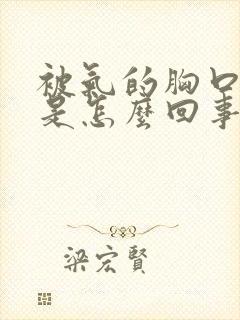 被氣的胸口
是怎麼回事
梁宏賢